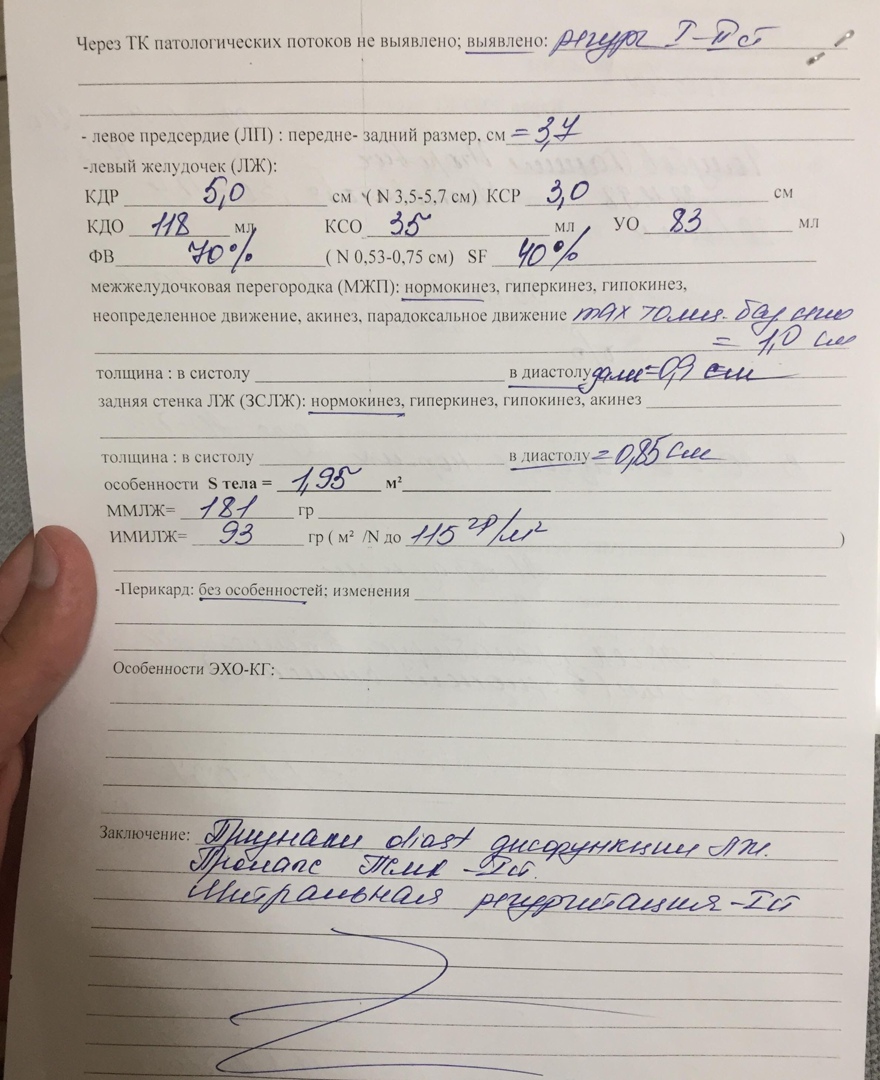 Через ТК патологических потоков не выявлено; выявлено: регург I-II ст
- левое предсердие (ЛП) : передне- задний размер, см = 3,7
-левый желудочек (ЛЖ):
КДР 5,0 см ( N 3,5-5,7 см) КСР 3,0 см
КДО 118 мл КСО 35 мл УО 83 мл
ФВ 70% ( N 0,53-0,75 см) SF 40%
межжелудочковая перегородка (МЖП): нормокинез, гиперкинез, гипокинез,
неопределенное движение, акинез, парадоксальное движение max толщ.
= 1,0 см
толщина : в систолу в диастолу далее=0,9 см
задняя стенка ЛЖ (ЗСЛЖ): нормокинез, гиперкинез, гипокинез, акинез
толщина : в систолу в диастолу = 0,85 см
особенности S тела = 1,95 м²
ММЛЖ= 181 гр
ИМИЛЖ= 93 гр ( м² /N до 115 гр/м² )
-Перикард: без особенностей; изменения
Особенности ЭХО-КГ:
Заключение: Признаки diast дисфункции ЛЖ.
Пролапс ПСМК -I ст.
Митральная регургитация -I ст